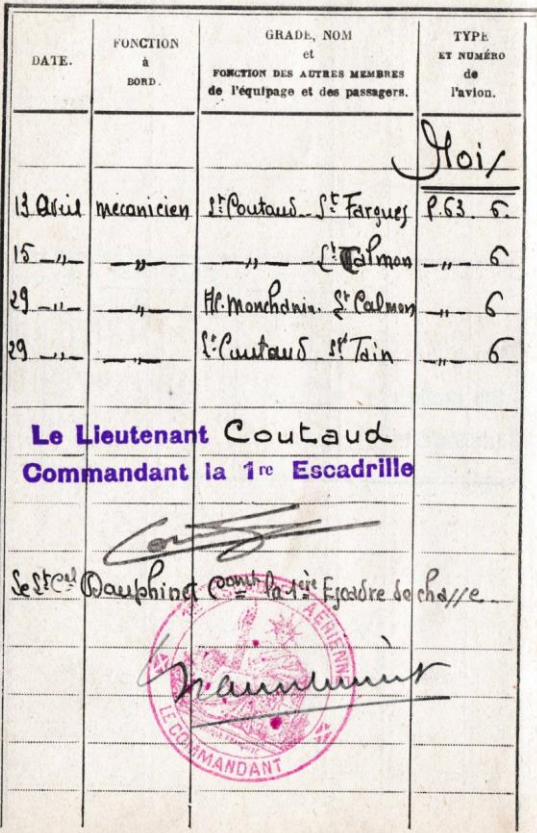 DATE.
FONCTION
à
BORD.
GRADE, NOM
et
FONCTION DES AUTRES MEMBRES
de l'équipage et des passagers.
TYPE
ET NUMÉRO
de
l'avion.
Moi/
13 Avril mecanicien Lt Coutaud Sgt Fargues P.63. 6.
15 -"- -"- -"- Lt Calmon -"- 6
29 -"- -"- A/C. Monchanin. Lt Calmon -"- 6
29 -"- -"- Lt Coutaud Sgt Tain -"- 6
Le Lieutenant Coutaud
Commandant la 1re Escadrille
Le Lt Cel Dauphinet Comt la 1ère Escadre de chasse
AÉRIENNE
LE COMMANDANT